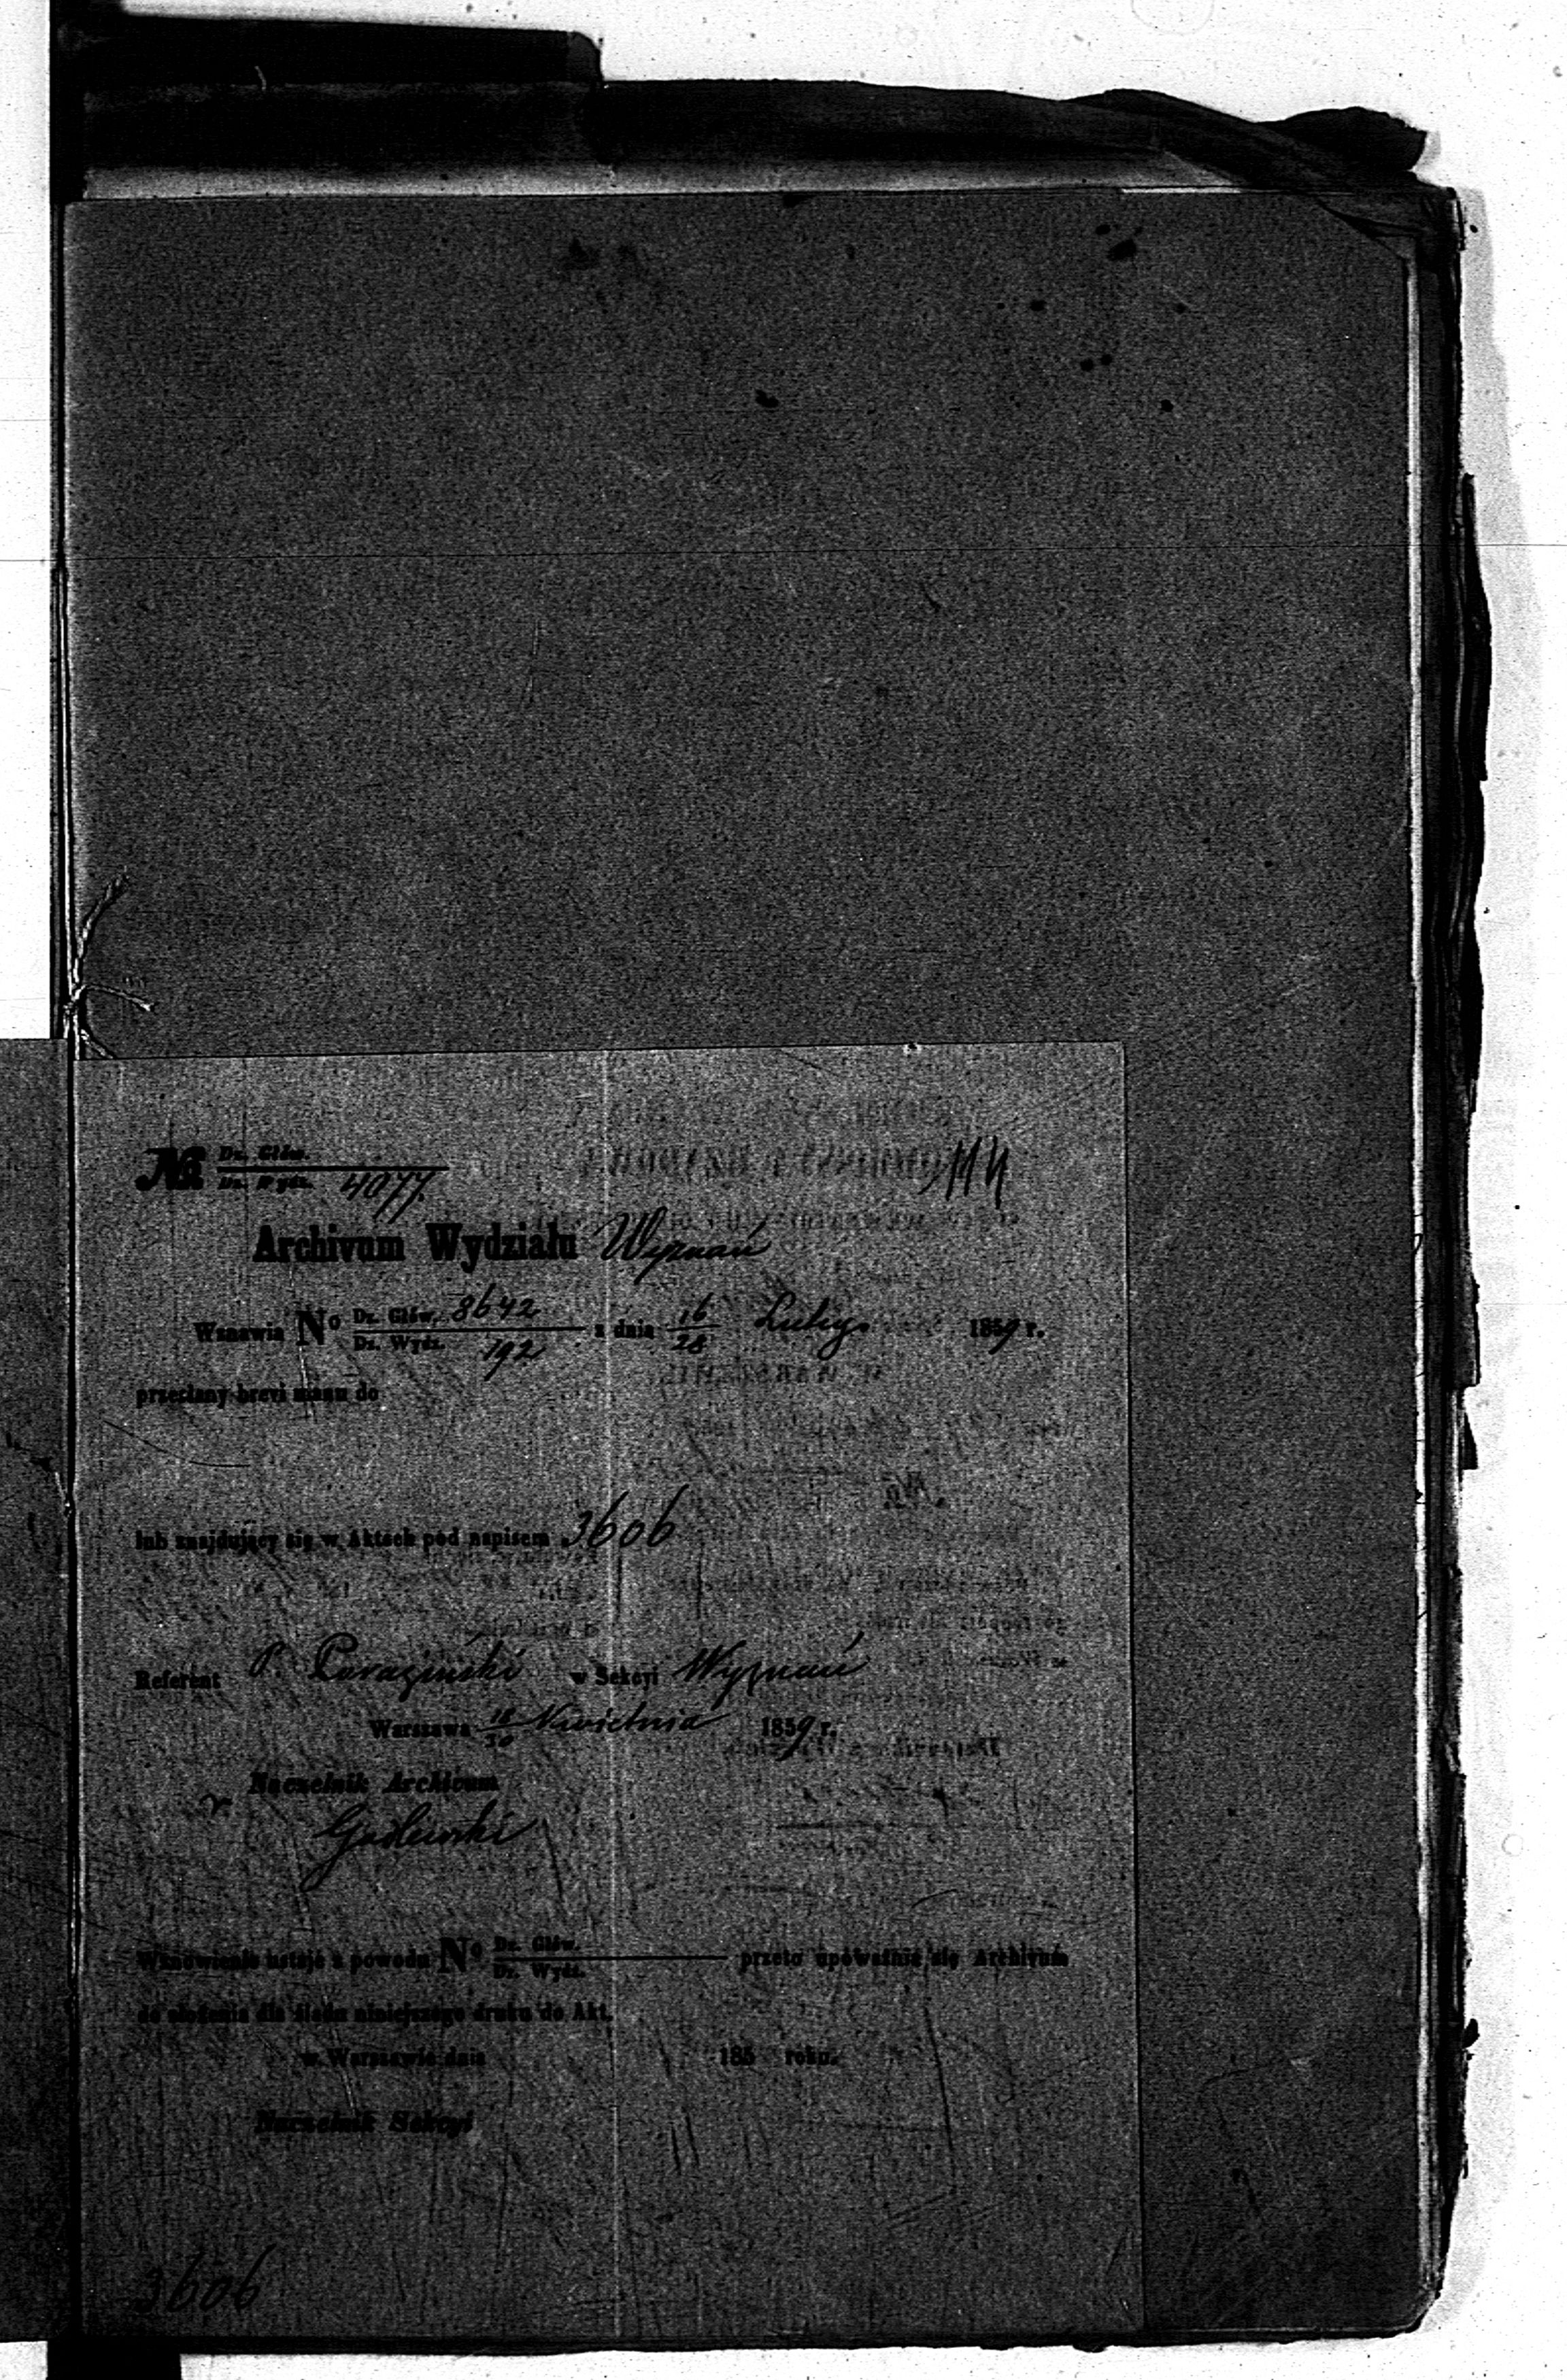 № Dz. Głów.
Dz. Wydz. 4077
Archivum Wydziału Wyznań
Wznawia No Dz. Głów. 8642 z dnia 16/28 Lutego 1859 r.
Dz. Wydz. 192
przesłany brevi manu do
lub znajdujący się w Aktach pod napisem 3606
Referent P. w Sekcyi Wyznań
Warszawa 18/30 Kwietnia 1859 r.
Naczelnik Archivum
Godlewski
Wznowienie ustaje z powodu No Dz. Głów. przeto upoważnia się Archivum
Dz. Wydz.
do złożenia dla śladu niniejszego druku do Akt.
w Warszawie dnia 185 roku.
Naczelnik Sekcyi
3606